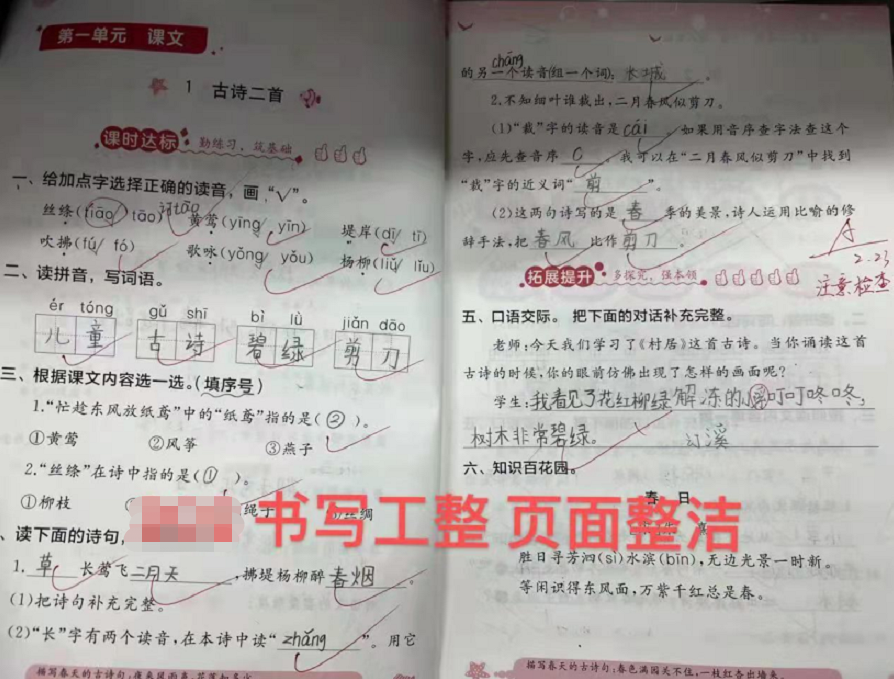 第一单元 课文
1 古诗二首
课时达标 勤练习，筑基础
一、给加点字选择正确的读音，画“√”。
丝绦(tiāo tāo) tāo 黄莺(yīng/yīn) 堤岸(dī/tī)
吹拂(fú/fó) 歌咏(yǒng/yǒu) 杨柳(liǔ/lǐu)
二、读拼音，写词语。
ér tóng gǔ shī bì lǜ jiǎn dāo
儿童 古诗 碧绿 剪刀
三、根据课文内容选一选。(填序号)
1.“忙趁东风放纸鸢”中的“纸鸢”指的是(②)。
①黄莺 ②风筝 ③燕子
2.“丝绦”在诗中指的是(①)。
①柳枝 绳子 丝绸
书写工整 页面整洁
、读下面的诗句，
1. 草 长莺飞 二月天 ，拂堤杨柳醉 春烟 。
(1)把诗句补充完整。
(2)“长”字有两个读音，在本诗中读“zhǎng”。用它
描写春天的古诗句：
cháng
的另一个读音(组一个词)：长城。
2.不知细叶谁裁出，二月春风似剪刀。
(1)“裁”字的读音是cái，如果用音序查字法查这个
字，应先查音序 C 。我可以在“二月春风似剪刀”中找到
“裁”字的近义词“剪”。
(2)这两句诗写的是 春 季的美景，诗人运用比喻的修
辞手法，把 春风 比作 剪刀 。
A
2.23
注意检查
拓展提升 多探究，强本领
五、口语交际。把下面的对话补充完整。
老师：今天我们学习了《村居》这首古诗。当你诵读这首
古诗的时候，你的眼前仿佛出现了怎样的画面呢？
学生：我看见了花红柳绿解冻的 叮叮咚咚，
树木非常碧绿。 溪
六、知识百花园。
春 日
胜日寻芳泗(sì)水滨(bīn)，无边光景一时新。
等闲识得东风面，万紫千红总是春。
描写春天的古诗句：春色满园关不住，一枝红杏出墙来。